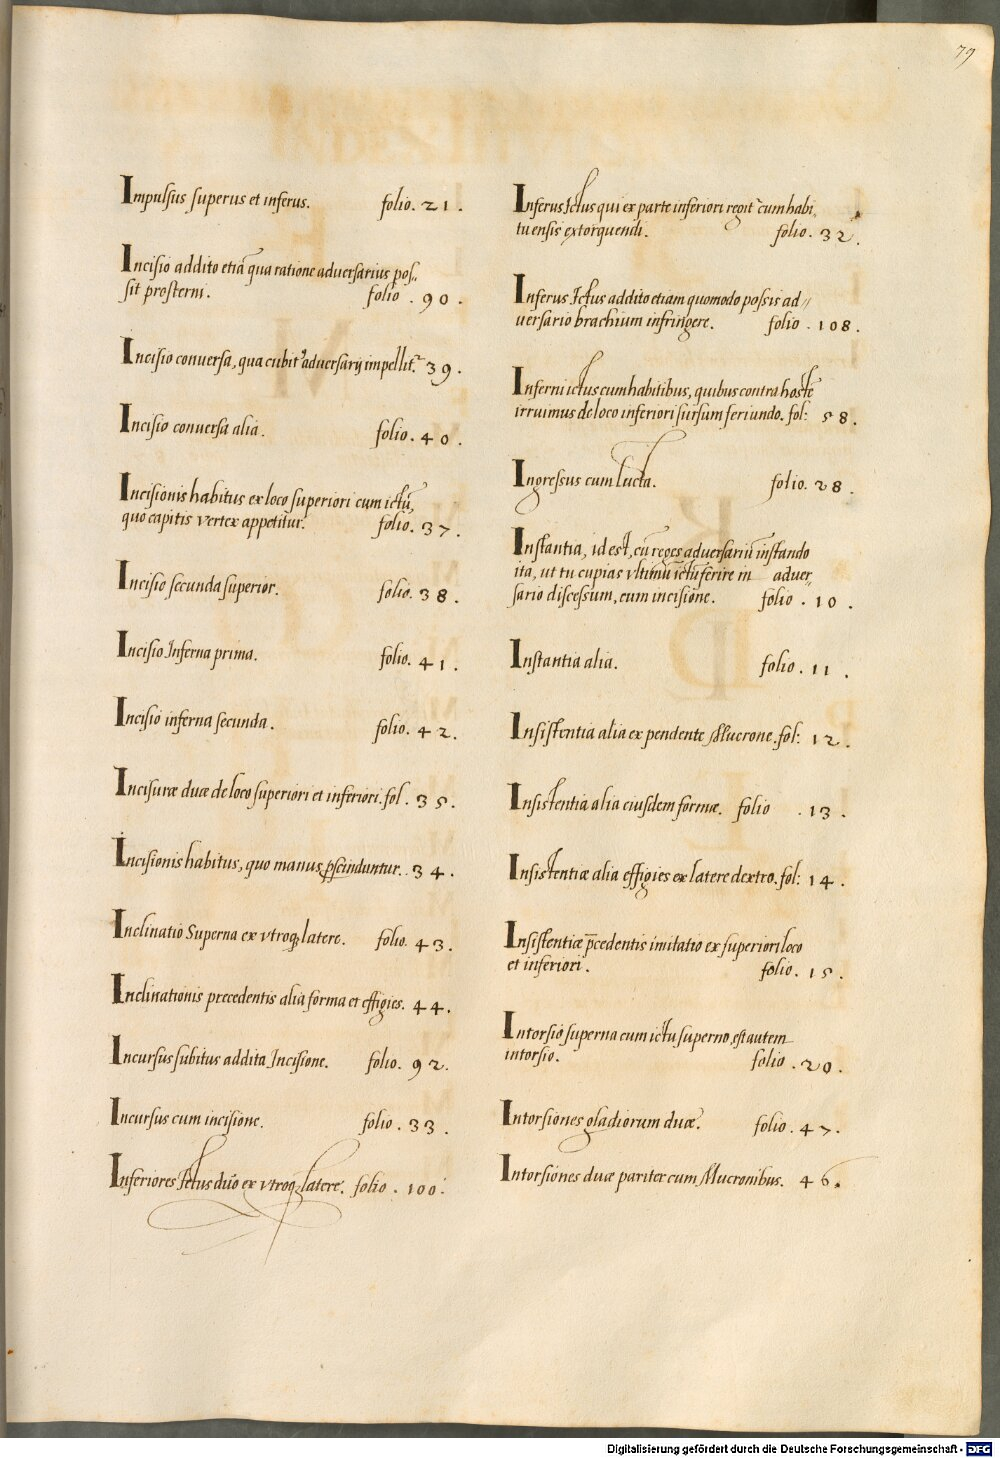 79
Impulsus superus et inferus. folio. 21.
Incisio addito etiā qua ratione adversarius pos,,
sit prosterni. folio. 90.
Incisio conversa, qua cubitꝰ adversarij impellitr̃. 39.
Incisio conversa alia. folio. 40.
Incisionis habitus ex loco superiori cum ictū,
quo capitis vertex appetitur. folio. 37.
Incisio secunda superior. folio. 38.
Incisio Inferna prima. folio. 41.
Incisio inferna secunda. folio. 42.
Incisuræ duæ de loco superiori et inferiori. fol. 35.
Incisionis habitus, quo manus p̱scinduntur. 34.
Inclinatio Superna ex vtroq; latere. folio. 43.
Inclinationis precedentis alia forma et effigies. 44.
Incursus subitus addita Incisione. folio. 92.
Incursus cum incisione. folio. 33.
Inferiores Ictus duo ex vtroq; latere. folio. 100.
Inferus Ictus qui ex parte inferiori regit cum habi,,
tu ensis extorquendi. folio. 32.
Inferus Ictus addito etiam quomodo possis ad,,
versario brachium infringere. folio. 108.
Inferni ictus cum habitibus, quibus contra hostē
irruimus de loco inferiori sursum feriundo. fol: 58.
Ingressus cum lucta. folio. 28.
Instantia, id est, cū reges adversariū instando
ita, ut tu cupias vltimū ictū ferire in adver,,
sario discessum, cum incisione. folio. 10.
Instantia alia. folio. 11.
Insistentia alia ex pendente Mucrone. fol: 12.
Insistentia alia eiusdem formæ. folio. 13.
Insistentiæ alia effigies ex latere dextro. fol: 14.
Insistentiæ p̄cedentis imitatio ex superiori loco
et inferiori. folio. 15.
Intorsio superna cum ictu superno, est autem
intorsio. folio. 20.
Intorsiones gladiorum duæ. folio. 47.
Intorsiones duæ pariter cum Mucronibus. 46.
Digitalisierung gefördert durch die Deutsche Forschungsgemeinschaft - DFG